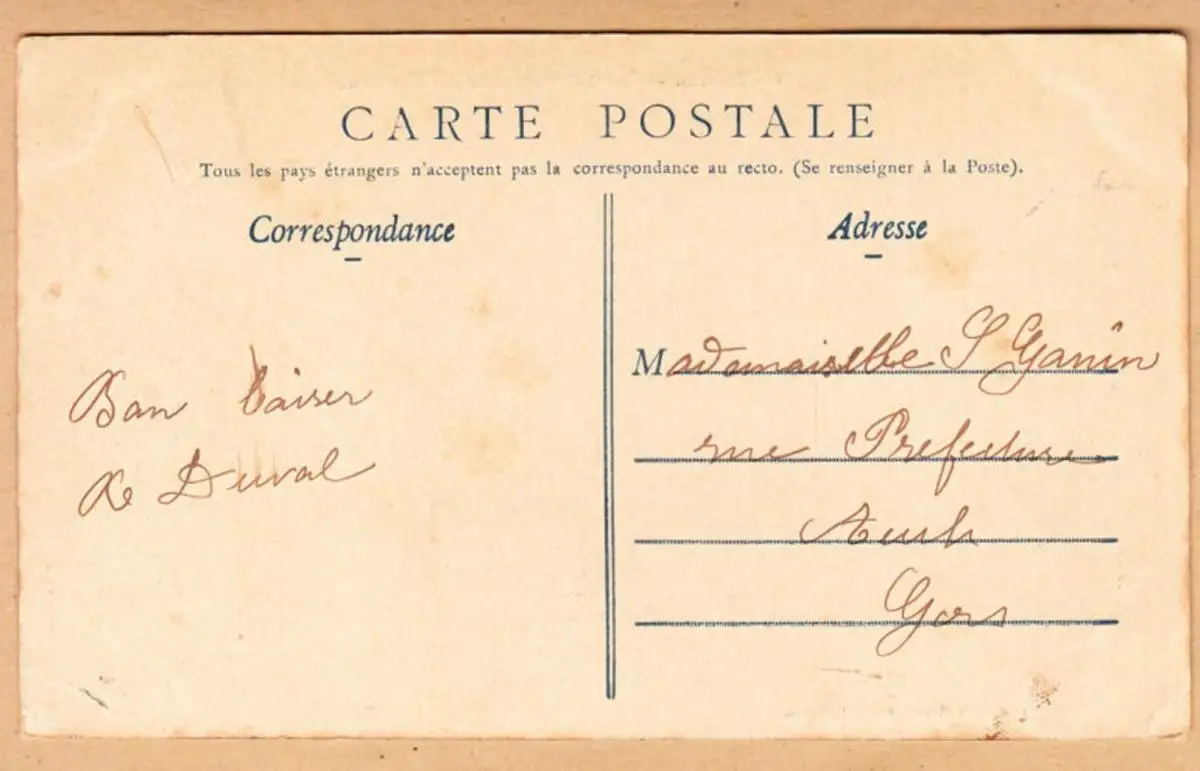 CARTE POSTALE
Tous les pays étrangers n'acceptent pas la correspondance au recto. (Se renseigner à la Poste).
Correspondance
Adresse
Mademoiselle S Ganin
rue Prefecture
Auch
Gers
Bon baiser
Duval